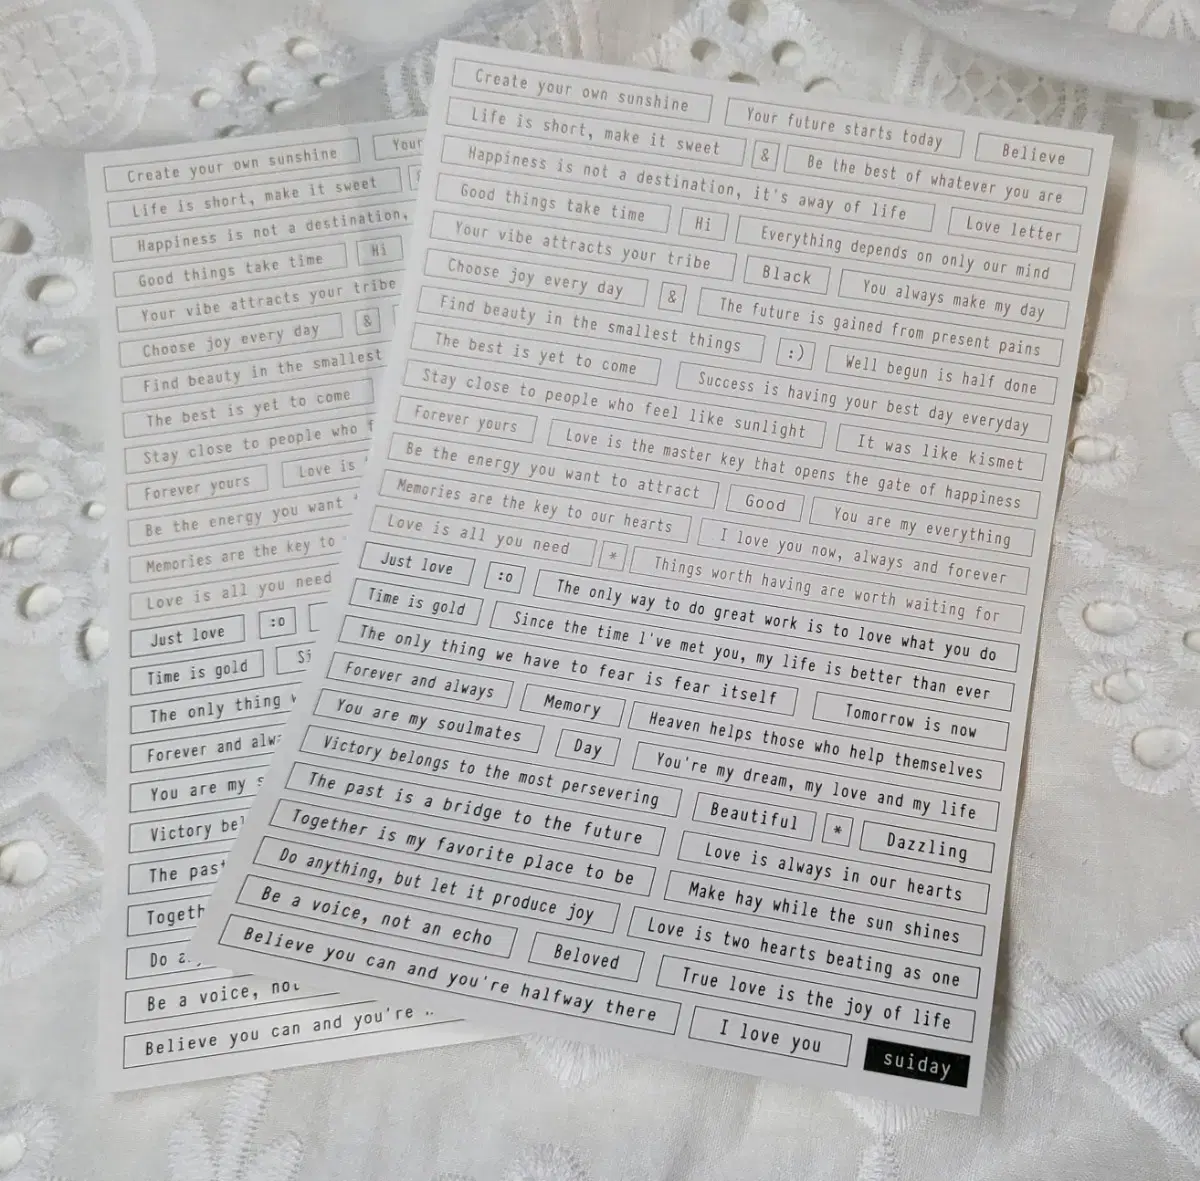 Create your own sunshine Your future starts today Believe
Life is short, make it sweet & Be the best of whatever you are
Happiness is not a destination, it's away of life Love letter
Good things take time Hi Everything depends on only our mind
Your vibe attracts your tribe Black You always make my day
Choose joy every day & The future is gained from present pains
Find beauty in the smallest things :) Well begun is half done
The best is yet to come Success is having your best day everyday
Stay close to people who feel like sunlight It was like kismet
Forever yours Love is the master key that opens the gate of happiness
Be the energy you want to attract Good You are my everything
Memories are the key to our hearts I love you now, always and forever
Love is all you need * Things worth having are worth waiting for
Just love :o The only way to do great work is to love what you do
Time is gold Since the time l've met you, my life is better than ever
The only thing we have to fear is fear itself Tomorrow is now
Forever and always Memory Heaven helps those who help themselves
You are my soulmates Day You're my dream, my love and my life
Victory belongs to the most persevering Beautiful * Dazzling
The past is a bridge to the future Love is always in our hearts
Together is my favorite place to be Make hay while the sun shines
Do anything, but let it produce joy Love is two hearts beating as one
Be a voice, not an echo Beloved True love is the joy of life
Believe you can and you're halfway there I love you suiday
Create your own sunshine Your
Life is short, make it sweet
Happiness is not a destination,
Good things take time Hi
Your vibe attracts your tribe
Choose joy every day &
Find beauty in the smallest
The best is yet to come
Stay close to people who
Forever yours Love is
Be the energy you want
Memories are the key to
Love is all you need
Just love :o
Time is gold Si
The only thing
Forever and alw
You are my
Victory be
The pas
Togeth
Do
Be a voice, no
Believe you can and you're